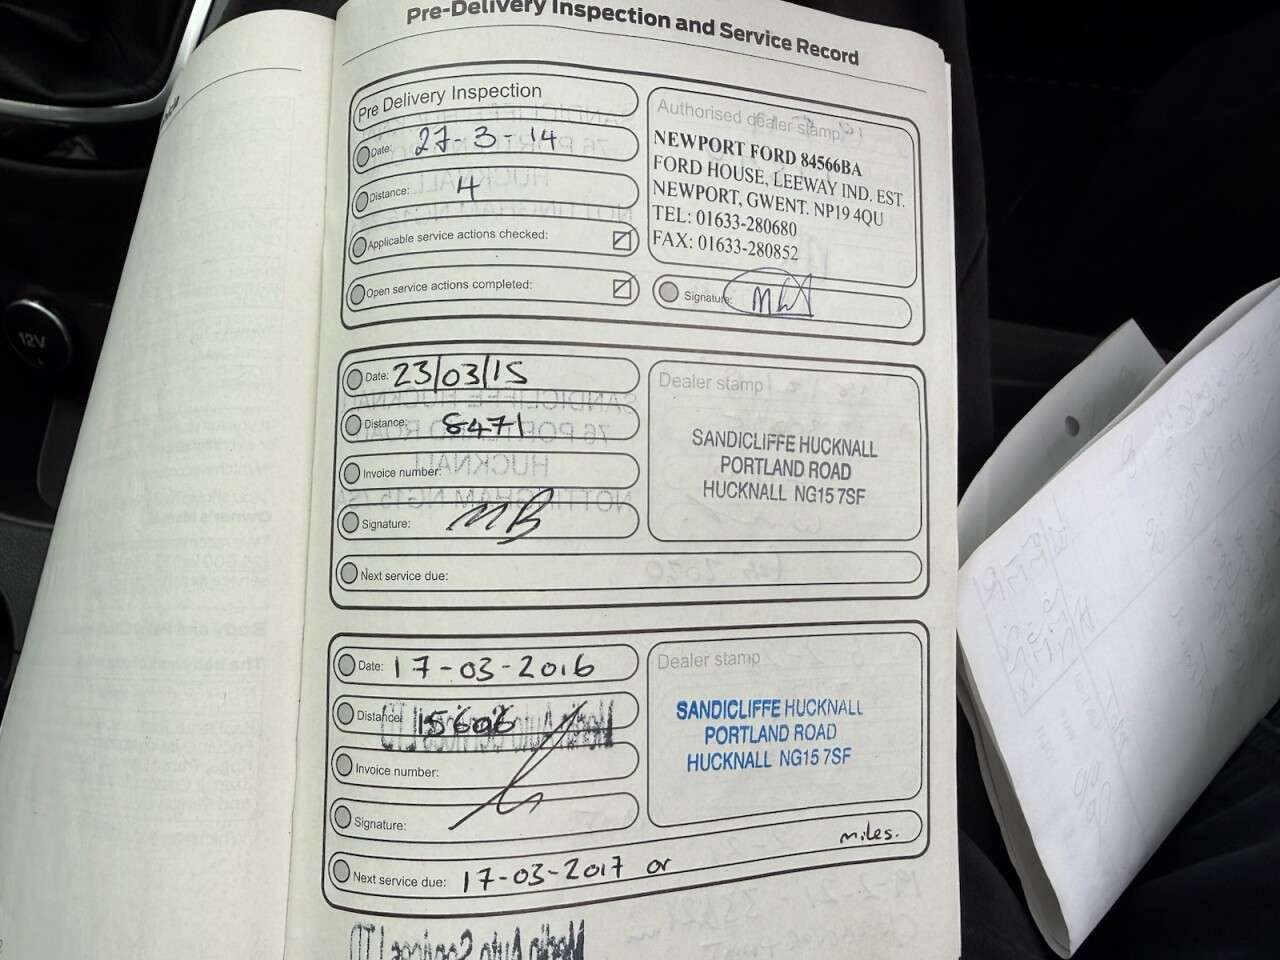 Pre-Delivery Inspection and Service Record
Pre Delivery Inspection
Date: 27-3-14
Distance: 4
Applicable service actions checked:
Open service actions completed:
Authorised dealer stamp
NEWPORT FORD 84566BA
FORD HOUSE, LEEWAY IND. EST.
NEWPORT, GWENT. NP19 4QU
TEL: 01633-280680
FAX: 01633-280852
Signature:
Date: 23/03/15
Distance: 8471
Invoice number:
Signature: MB
Next service due:
Dealer stamp
SANDICLIFFE HUCKNALL
PORTLAND ROAD
HUCKNALL NG15 7SF
Date: 17-03-2016
Distance: 15606
Invoice number:
Signature:
Next service due: 17-03-2017 or miles.
Dealer stamp
SANDICLIFFE HUCKNALL
PORTLAND ROAD
HUCKNALL NG15 7SF
12V